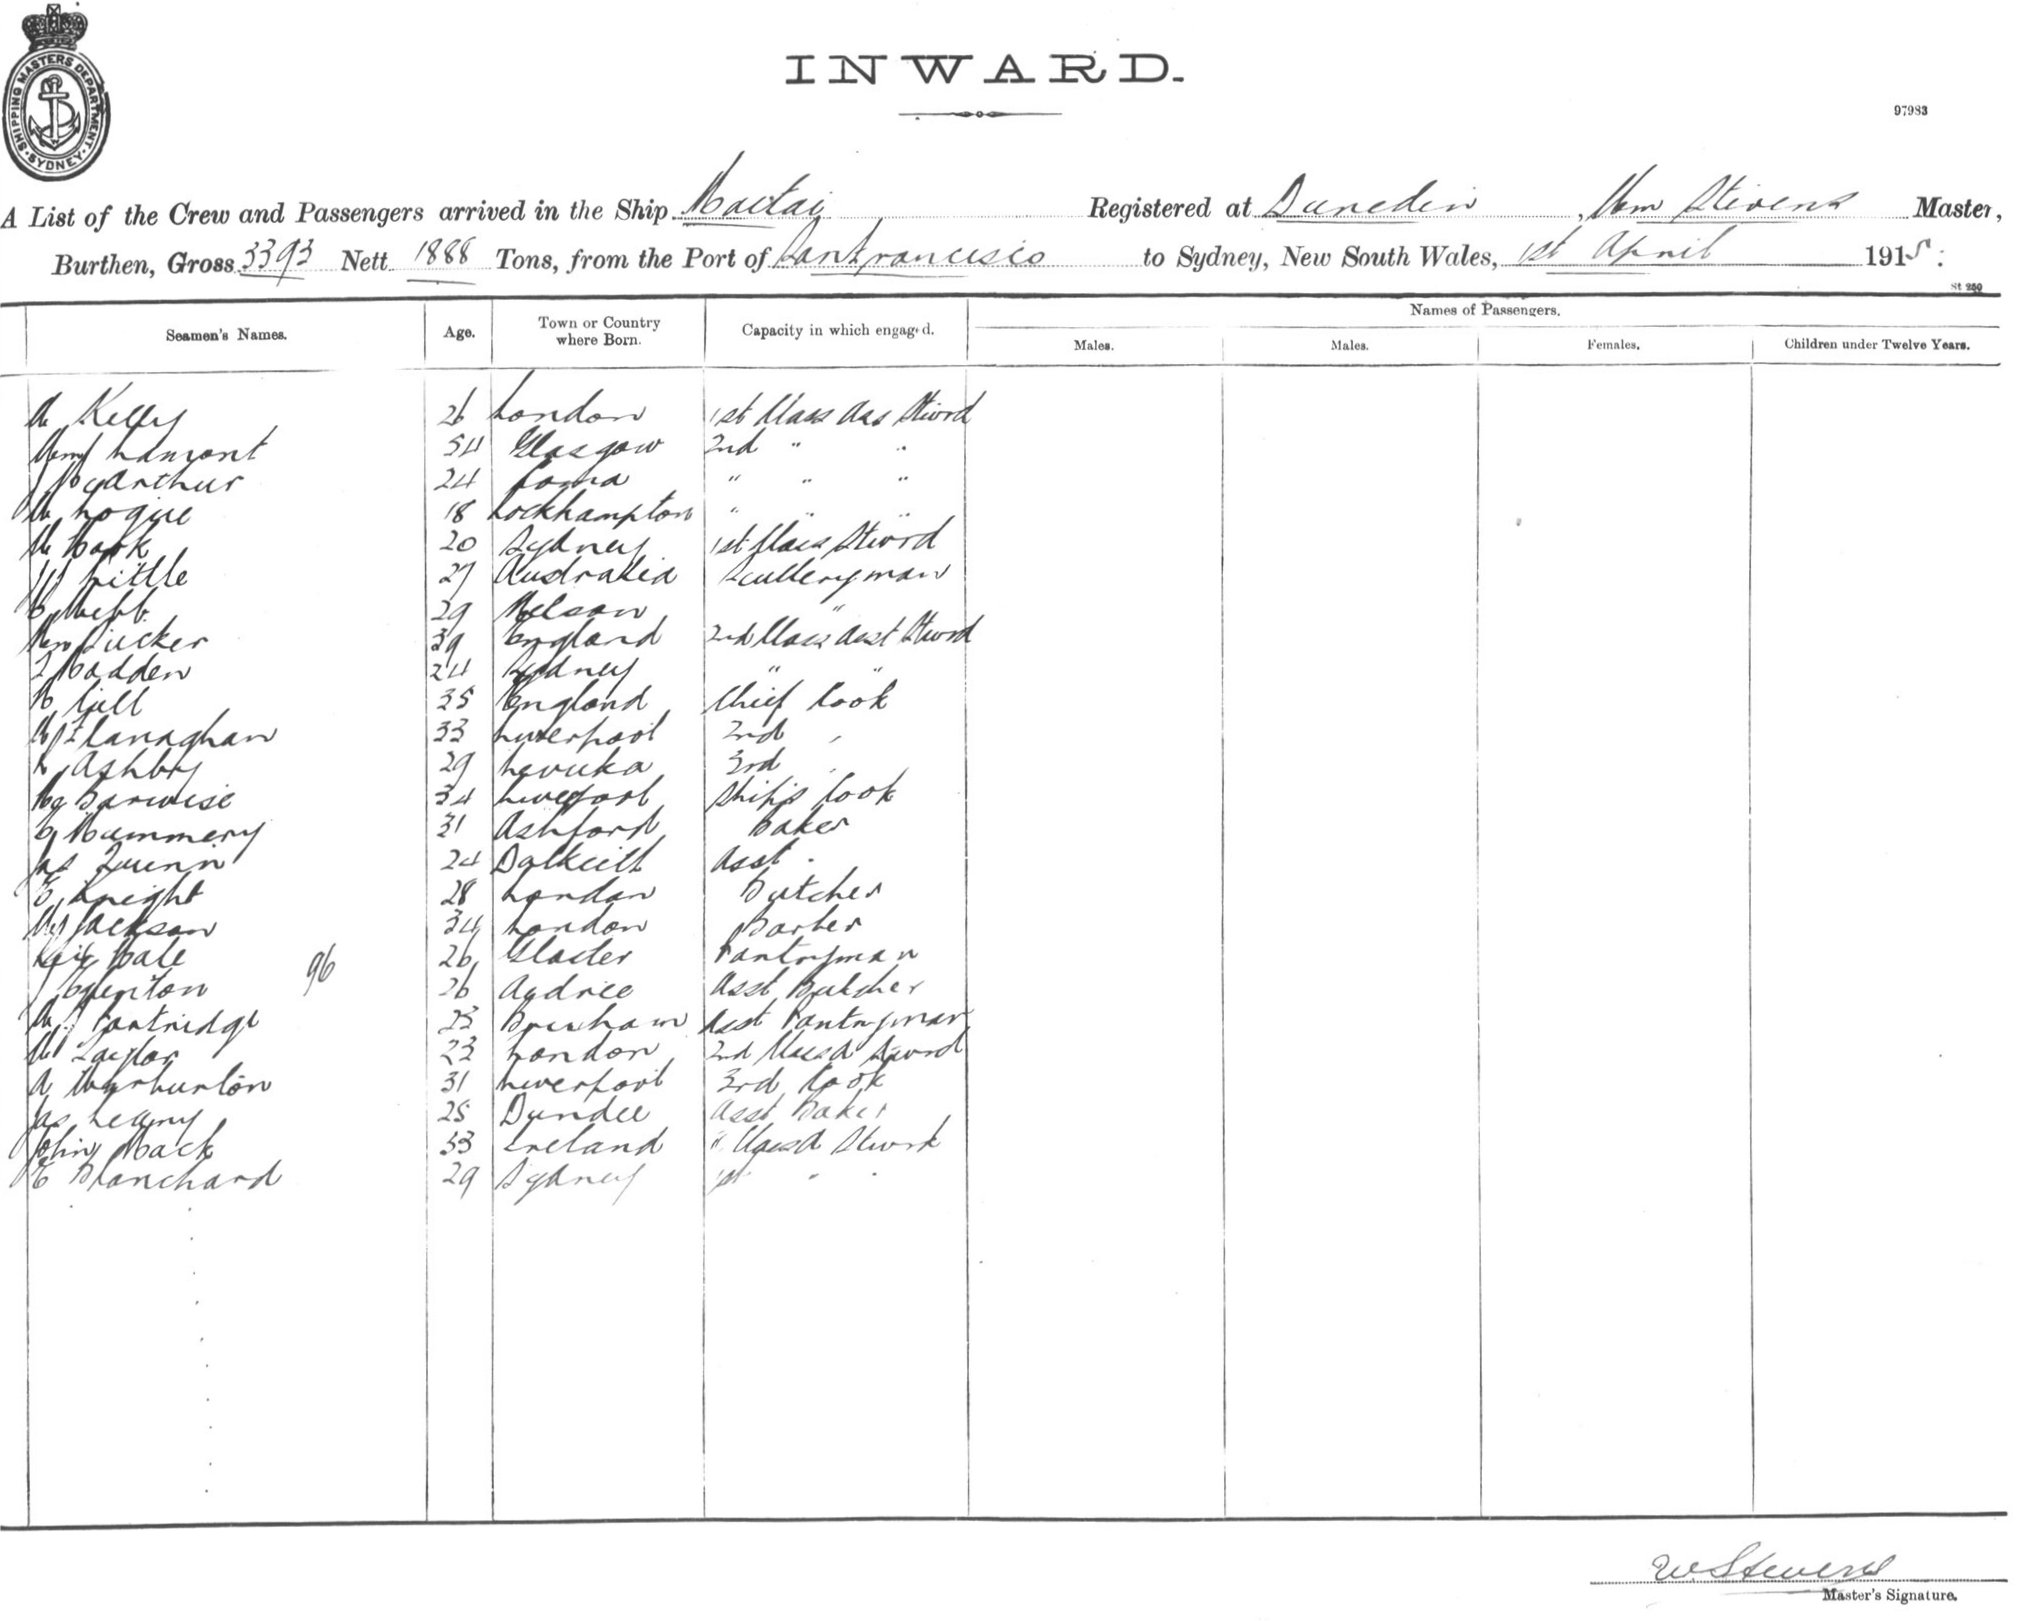 SHIPPING MASTERS DEPARTMENT
SYDNEY
INWARD.
97983
A List of the Crew and Passengers arrived in the Ship Maitai Registered at Dunedin, Wm Stevens Master,
Burthen, Gross 3393 Nett 1888 Tons, from the Port of San Francisco to Sydney, New South Wales, 1st April 1915:
St 250
Seamen's Names. Age. Town or Country where Born. Capacity in which engaged. Names of Passengers.
Males. Males. Females. Children under Twelve Years.
Kelly 26 London 1st Class Ass Stwrd
Lamont 54 Glasgow 2nd " "
McArthur 24 " " "
Logue 18 Rockhampton " " "
20 Sydney 1st Class Stwrd
Little 27 Australia Sculleryman
Webb 29 Nelson "
Wm Tucker 39 England 2nd Class Asst Stwrd
Madden 24 Sydney " "
Gill 35 England Chief Cook
Flanaghan 33 Liverpool 2nd "
Ashby 29 Levuka 3rd "
Barwise 34 Liverpool Ships Cook
Mummery 31 Ashford Baker
Jas Quinn 24 Dalkeith Asst "
E Knight 28 London Butcher
Jackson 34 London Barber
26 Gloster Pantryman
96
26 Asst Butcher
Partridge 23 Brixham Asst Pantryman
Taylor 23 London 2nd Class A Stwrd
A Warburton 31 Liverpool 3rd Cook
Jas Leamy 25 Dundee Asst Baker
John Mack 33 Ireland " Class A Stwrd
E Blanchard 29 Sydney 1st " "
W Stevens
Master's Signature.